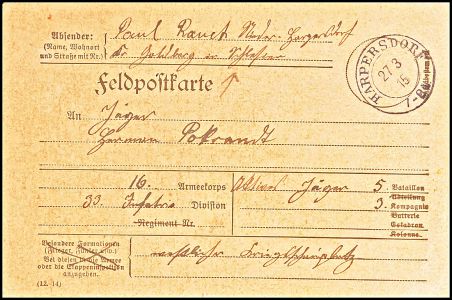 Absender: Paul Rauch Nieder-Harpersdorf
(Name, Wohnort und Straße mit Nr.) Kr Goldberg in Schlesien
Feldpostkarte
HARPERSDORF
27 3 15
7-8
An Jäger
Herman Pokrandt
16. Armeekorps
33. Infatrie Division
Regiment Nr.
Aktiev Jäger 5. Bataillon
Abteilung
3. Kompagnie
Batterie
Eskadron
Kolonne
Besondere Formationen
(Flieger, Funker usw.)
Bei diesen die Armee
oder die Etappeninspektion
anzugeben.
westlicher Kriegsschauplatz
(12. 14)